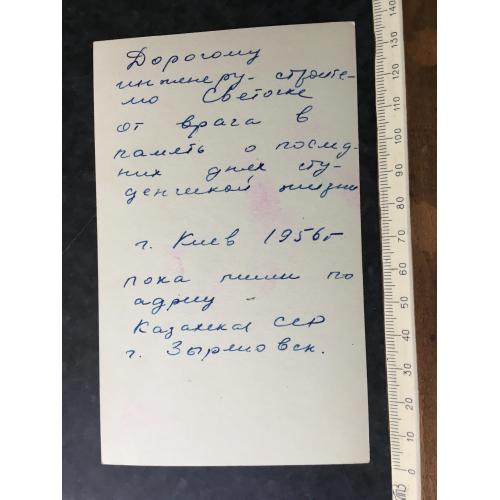 Дорогому
инженеру- строите-
лю Светочке
от врага в
память о послед-
них днях сту-
денческой жизни
г. Киев 1956 г
пока пиши по
адресу -
Казахская ССР
г. Зыряновск.
140
130
120
110
100
90
80
70
60
50
40
30
20
10
0